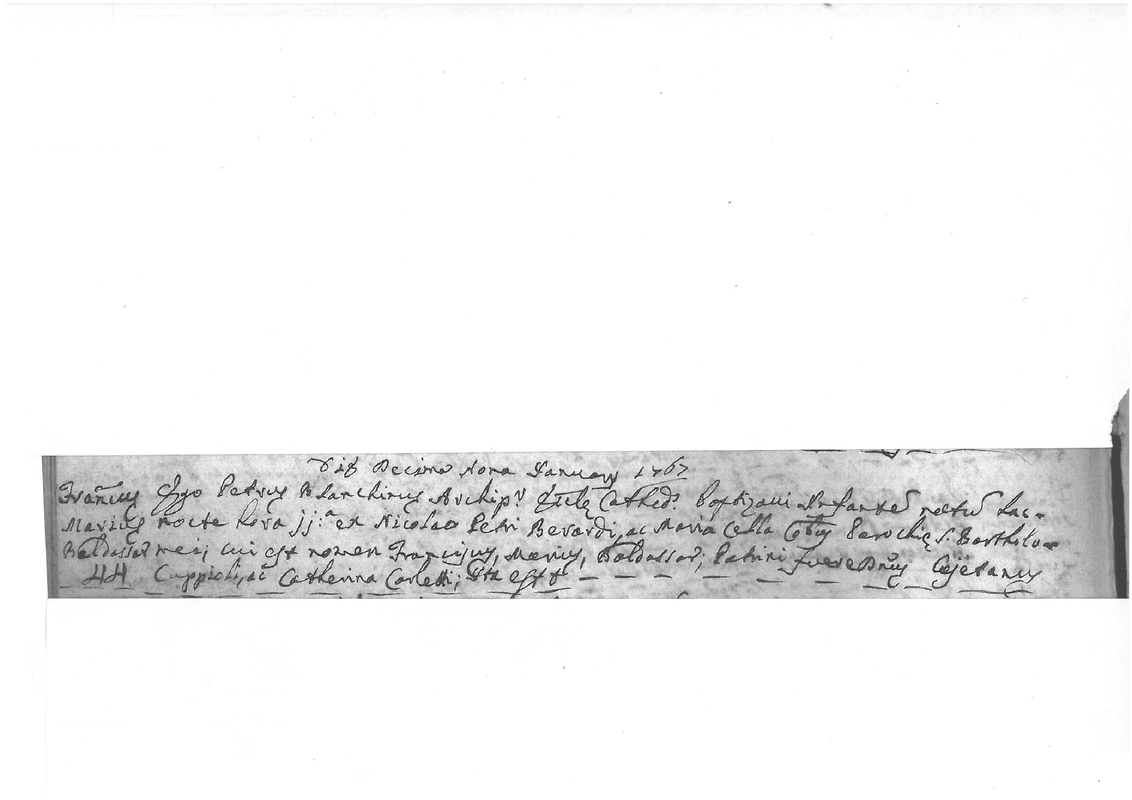 Die Decima Nona Januarij 1767
Franc̃us Ego Petrus Blanchinus Archipr. Ecclę Cathed. baptizavi Infantẽ natũ hac
Marius nocte hora jj.a ex Nicolao Petri Berardi, ac Maria Cella Parochię S. Bartholo=
Baldassar mei; cui est nomen Franciscus, Marius, Baldassar; Patrini fuere Dñus Cajetanus
44 Cappioli, ac Catherina Carletti; Ita est